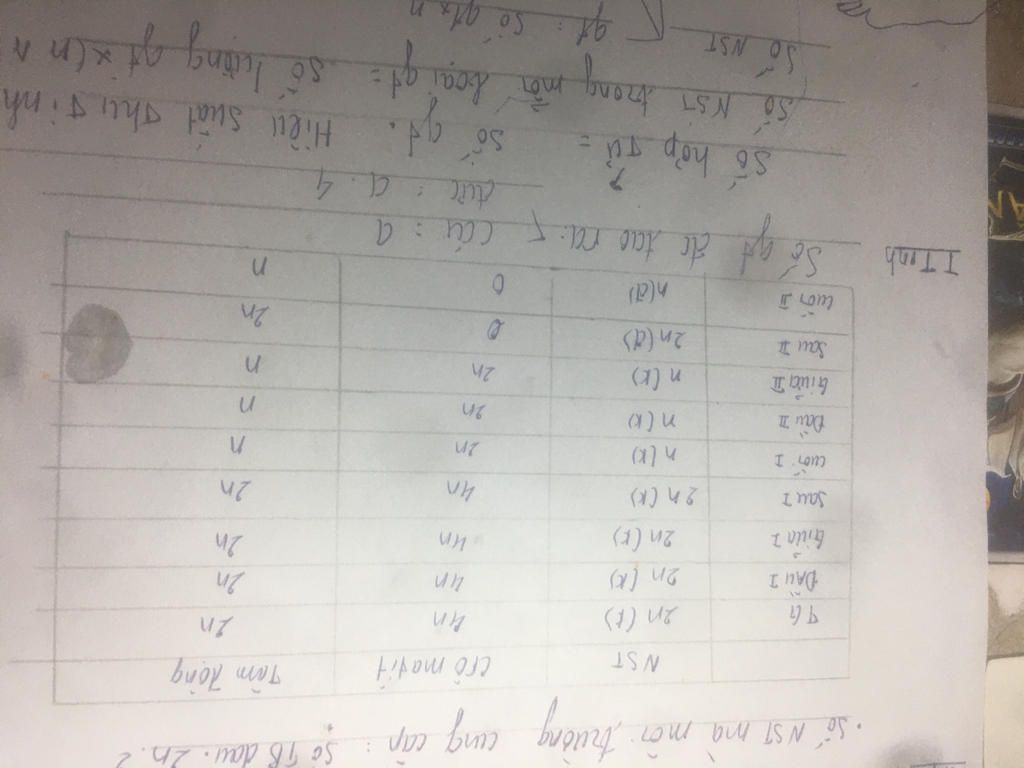 . Số NST mà môi trường cung cấp : Số TB đầu . 2n . 2
NST Crômatit Tâm động
TG 2n (k) 4n 2n
Đầu I 2n (k) 4n 2n
Giữa I 2n (k) 4n 2n
Sau I 2n (k) 4n 2n
cuối I n (k) 2n n
Đầu II n (k) 2n n
Giữa II n (k) 2n n
Sau II 2n (đ) 0 2n
cuối II n (đ) 0 n
Số gt đc tạo ra : Cái = a
đực = a . 4
Số hợp tử = Số gt . Hiệu suất thụ tinh
Số NST trong mỗi loại gt = Số lượng gt x (n
Số NST gt : Số gt x n